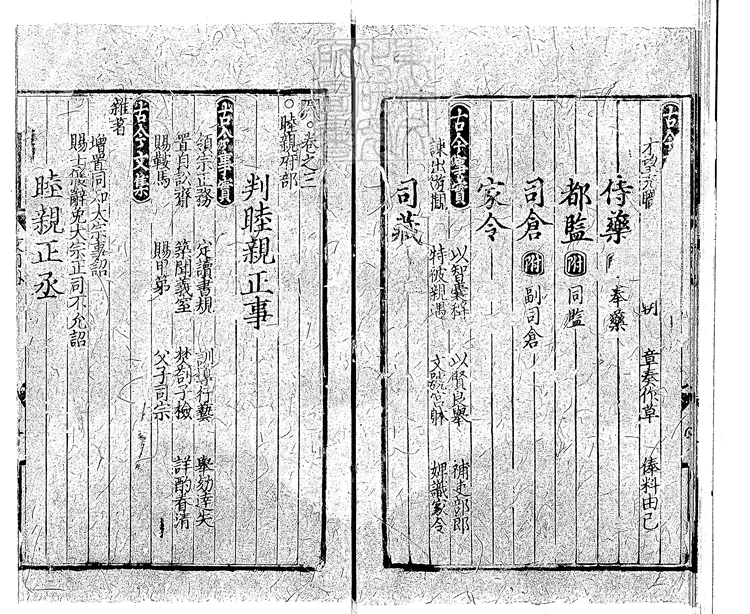 古今
章奏作草 俸料由己
侍藥 奉藥
都監 附 同監
司倉 附 副司倉
家令
古今事實 以智囊稱 以賢良舉 補吏部郎
諫出游獵 特被親遇 文競宮躰 婢識家令
司藏
卷之三
睦親府部
判睦親正事
古今事實
領宗正務 定讀書規 訓導行藝 舉劾違失
置自訟齋 築閱義室 焚劄子檢 詳酌春清
賜鞍馬 賜甲第 父子司宗
古今文集
雜著
增置同知大宗事詔
賜士 辭免大宗正司不允詔
睦親正丞